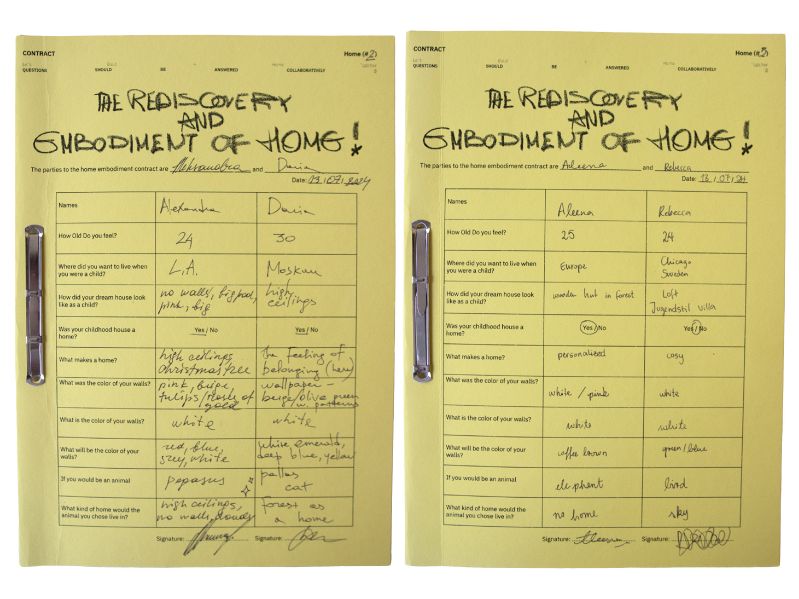 CONTRACT
Home (#2)
QUESTIONS SHOULD BE ANSWERED COLLABORATIVELY
THE REDISCOVERY
AND
EMBODIMENT OF HOME!
The parties to the home embodiment contract are Aleksandra and Daria
Date: 13/07/2024
Names Alexandra Daria
How Old Do you feel? 24 30
Where did you want to live when you were a child? L.A. Moskau
How did your dream house look like as a child? no walls, big pool, pink, big high ceilings
Was your childhood house a home? Yes / No Yes / No
What makes a home? high ceilings christmas tree the feeling of belonging (here)
What was the color of your walls? pink, beige, tulips / flesh of gold wallpaper - beige/olive green w. patterns
What is the color of your walls? white white
What will be the color of your walls? red, blue, grey, white white emerald, deep blue, yellow
If you would be an animal pegasus pallas cat
What kind of home would the animal you chose live in? high ceilings, no walls, clouds forest as a home
Signature: Signature:
CONTRACT
Home (#5)
QUESTIONS SHOULD BE ANSWERED COLLABORATIVELY
THE REDISCOVERY
AND
EMBODIMENT OF HOME!
The parties to the home embodiment contract are Aleena and Rebecca
Date: 13/07/24
Names Aleena Rebecca
How Old Do you feel? 25 24
Where did you want to live when you were a child? Europe Chicago Sweden
How did your dream house look like as a child? wooden hut in forest Loft Jugendstil Villa
Was your childhood house a home? Yes / No Yes / No
What makes a home? personalised cosy
What was the color of your walls? white / pink white
What is the color of your walls? white white
What will be the color of your walls? coffee brown green / blue
If you would be an animal elephant bird
What kind of home would the animal you chose live in? no home sky
Signature: Signature: